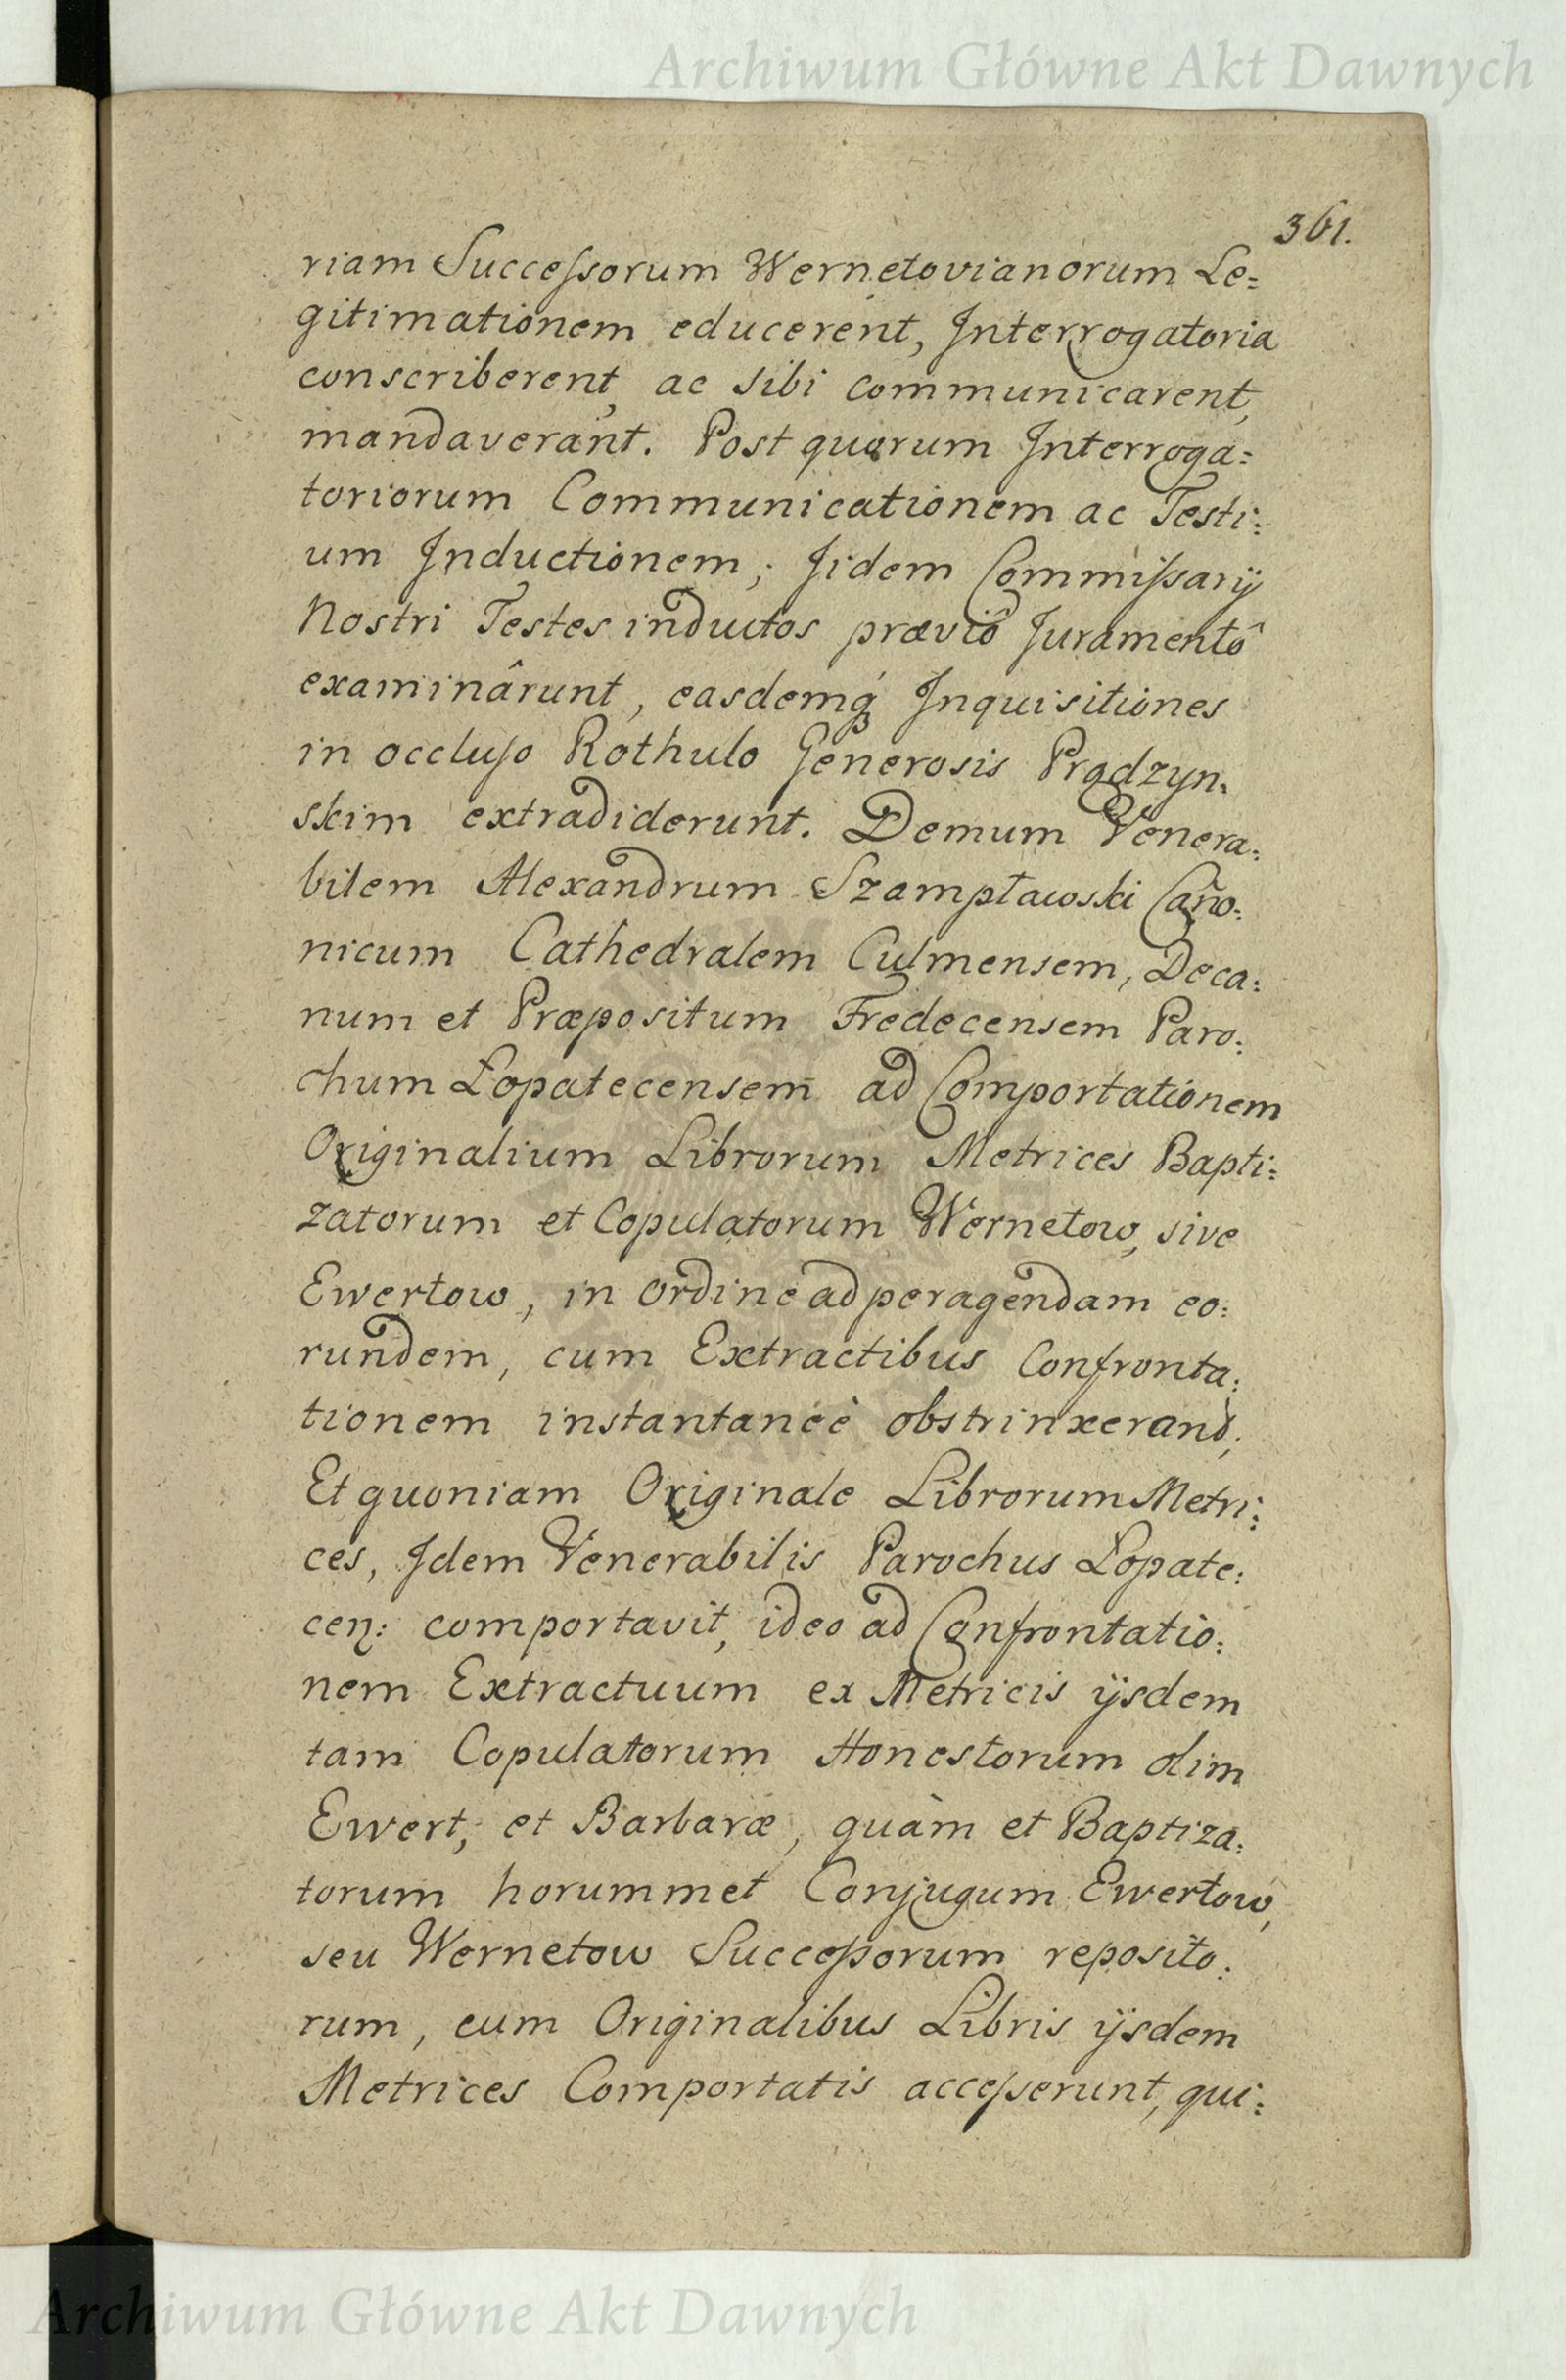 Archiwum Główne Akt Dawnych
361.
riam Successorum Wernetovianorum Le=
gitimationem educerent, Interrogatoria
conscriberent, ac sibi communicarent,
mandaverant. Post quorum Interroga=
toriorum Communicationem ac Testi:
um Inductionem; Iidem Commissarij
Nostri Testes inductos præviô Juramentô
examinârunt, easdemq́ Inquisitiones
in occluso Rothulo Generosis Prądzyn:
skim extradiderunt. Demum Venera:
bilem Alexandrum Szampławski Cano:
nicum Cathedralem Culmensem, Deca:
num et Præpositum Fredecensem Paro:
chum Łopatecensem ad Comportationem
Originalium Librorum Metrices Bapti:
zatorum et Copulatorum Wernetow, sive
Ewertow, in ordine ad peragendam eo:
rundem, cum Extractibus Confronta:
tionem instantaneè obstrinxerand;
Et quoniam Originale Librorum Metri:
ces, Idem Venerabilis Parochus Łopate:
ceń: comportavit, ideo ad Confrontatio:
nem Extractuum ex Metricis ijsdem
tam Copulatorum Honestorum olim
Ewert, et Barbaræ, quàm et Baptiza:
torum horummet Conjugum Ewertow,
seu Wernetow Successorum reposito:
rum, cum Originalibus Libris ijsdem
Metrices Comportatis accesserunt, qui:
Archiwum Główne Akt Dawnych